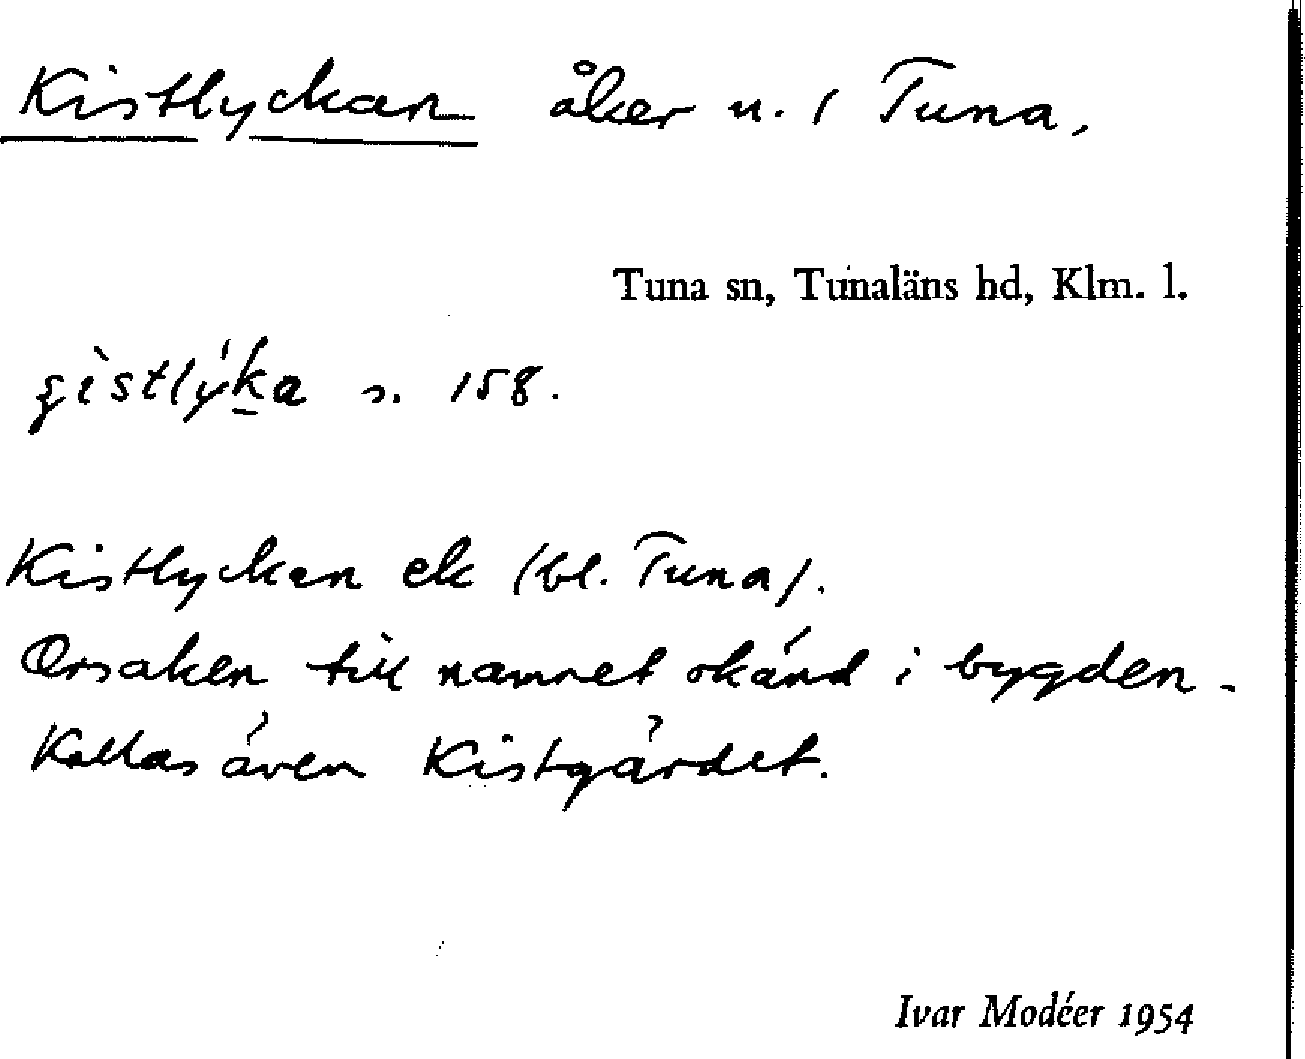 Kistlyckan åker n. 1 Tuna,
Tuna sn, Tunaläns hd, Klm. l.
s. 158.
Kistlyckan ek (bl. Tuna).
Orsaken till namnet okänd i bygden.
Kallas även Kistgärdet.
Ivar Modéer 1954